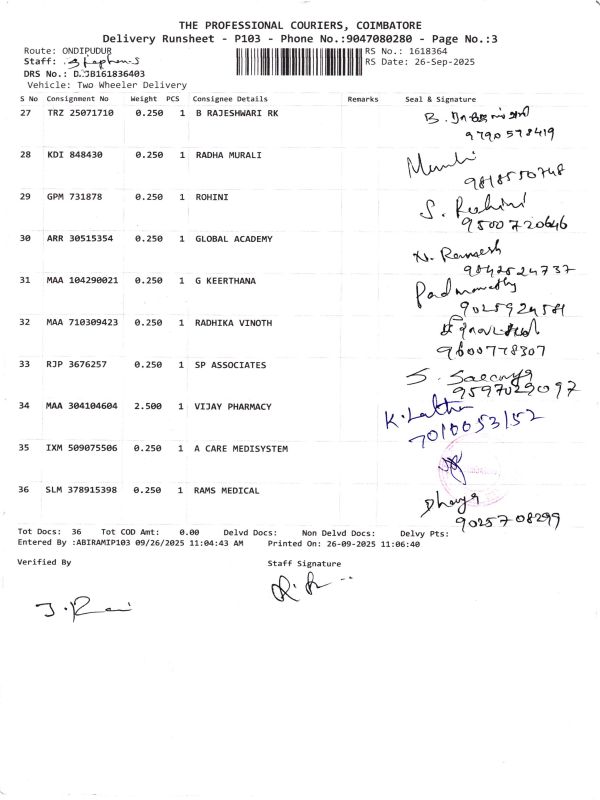 THE PROFESSIONAL COURIERS, COIMBATORE
Delivery Runsheet - P103 - Phone No.:9047080280 - Page No.:3
Route: ONDIPUDUR RS No.: 1618364
Staff: Stephen.S RS Date: 26-Sep-2025
DRS No.: D.JB161836403
Vehicle: Two Wheeler Delivery
S No Consignment No Weight PCS Consignee Details Remarks Seal & Signature
27 TRZ 25071710 0.250 1 B RAJESHWARI RK
9790578419
28 KDI 848430 0.250 1 RADHA MURALI Murali
9818550748
29 GPM 731878 0.250 1 ROHINI S. Rohini
9500720646
30 ARR 30515354 0.250 1 GLOBAL ACADEMY N. Ramesh
9842524737
31 MAA 104290021 0.250 1 G KEERTHANA Padmavathy
9025924581
32 MAA 710309423 0.250 1 RADHIKA VINOTH
9600778307
33 RJP 3676257 0.250 1 SP ASSOCIATES S.
9597029097
34 MAA 304104604 2.500 1 VIJAY PHARMACY K. Latha
7010053152
35 IXM 509075506 0.250 1 A CARE MEDISYSTEM
36 SLM 378915398 0.250 1 RAMS MEDICAL Dhanya
9025708299
Tot Docs: 36 Tot COD Amt: 0.00 Delvd Docs: Non Delvd Docs: Delvy Pts:
Entered By :ABIRAMIP103 09/26/2025 11:04:43 AM Printed On: 26-09-2025 11:06:40
Verified By Staff Signature